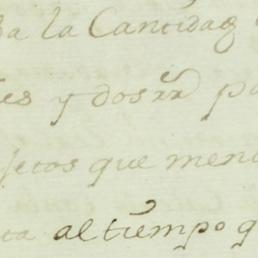 a la Cantidad
es y dos rr. p
etos que men
ta al tiempo q